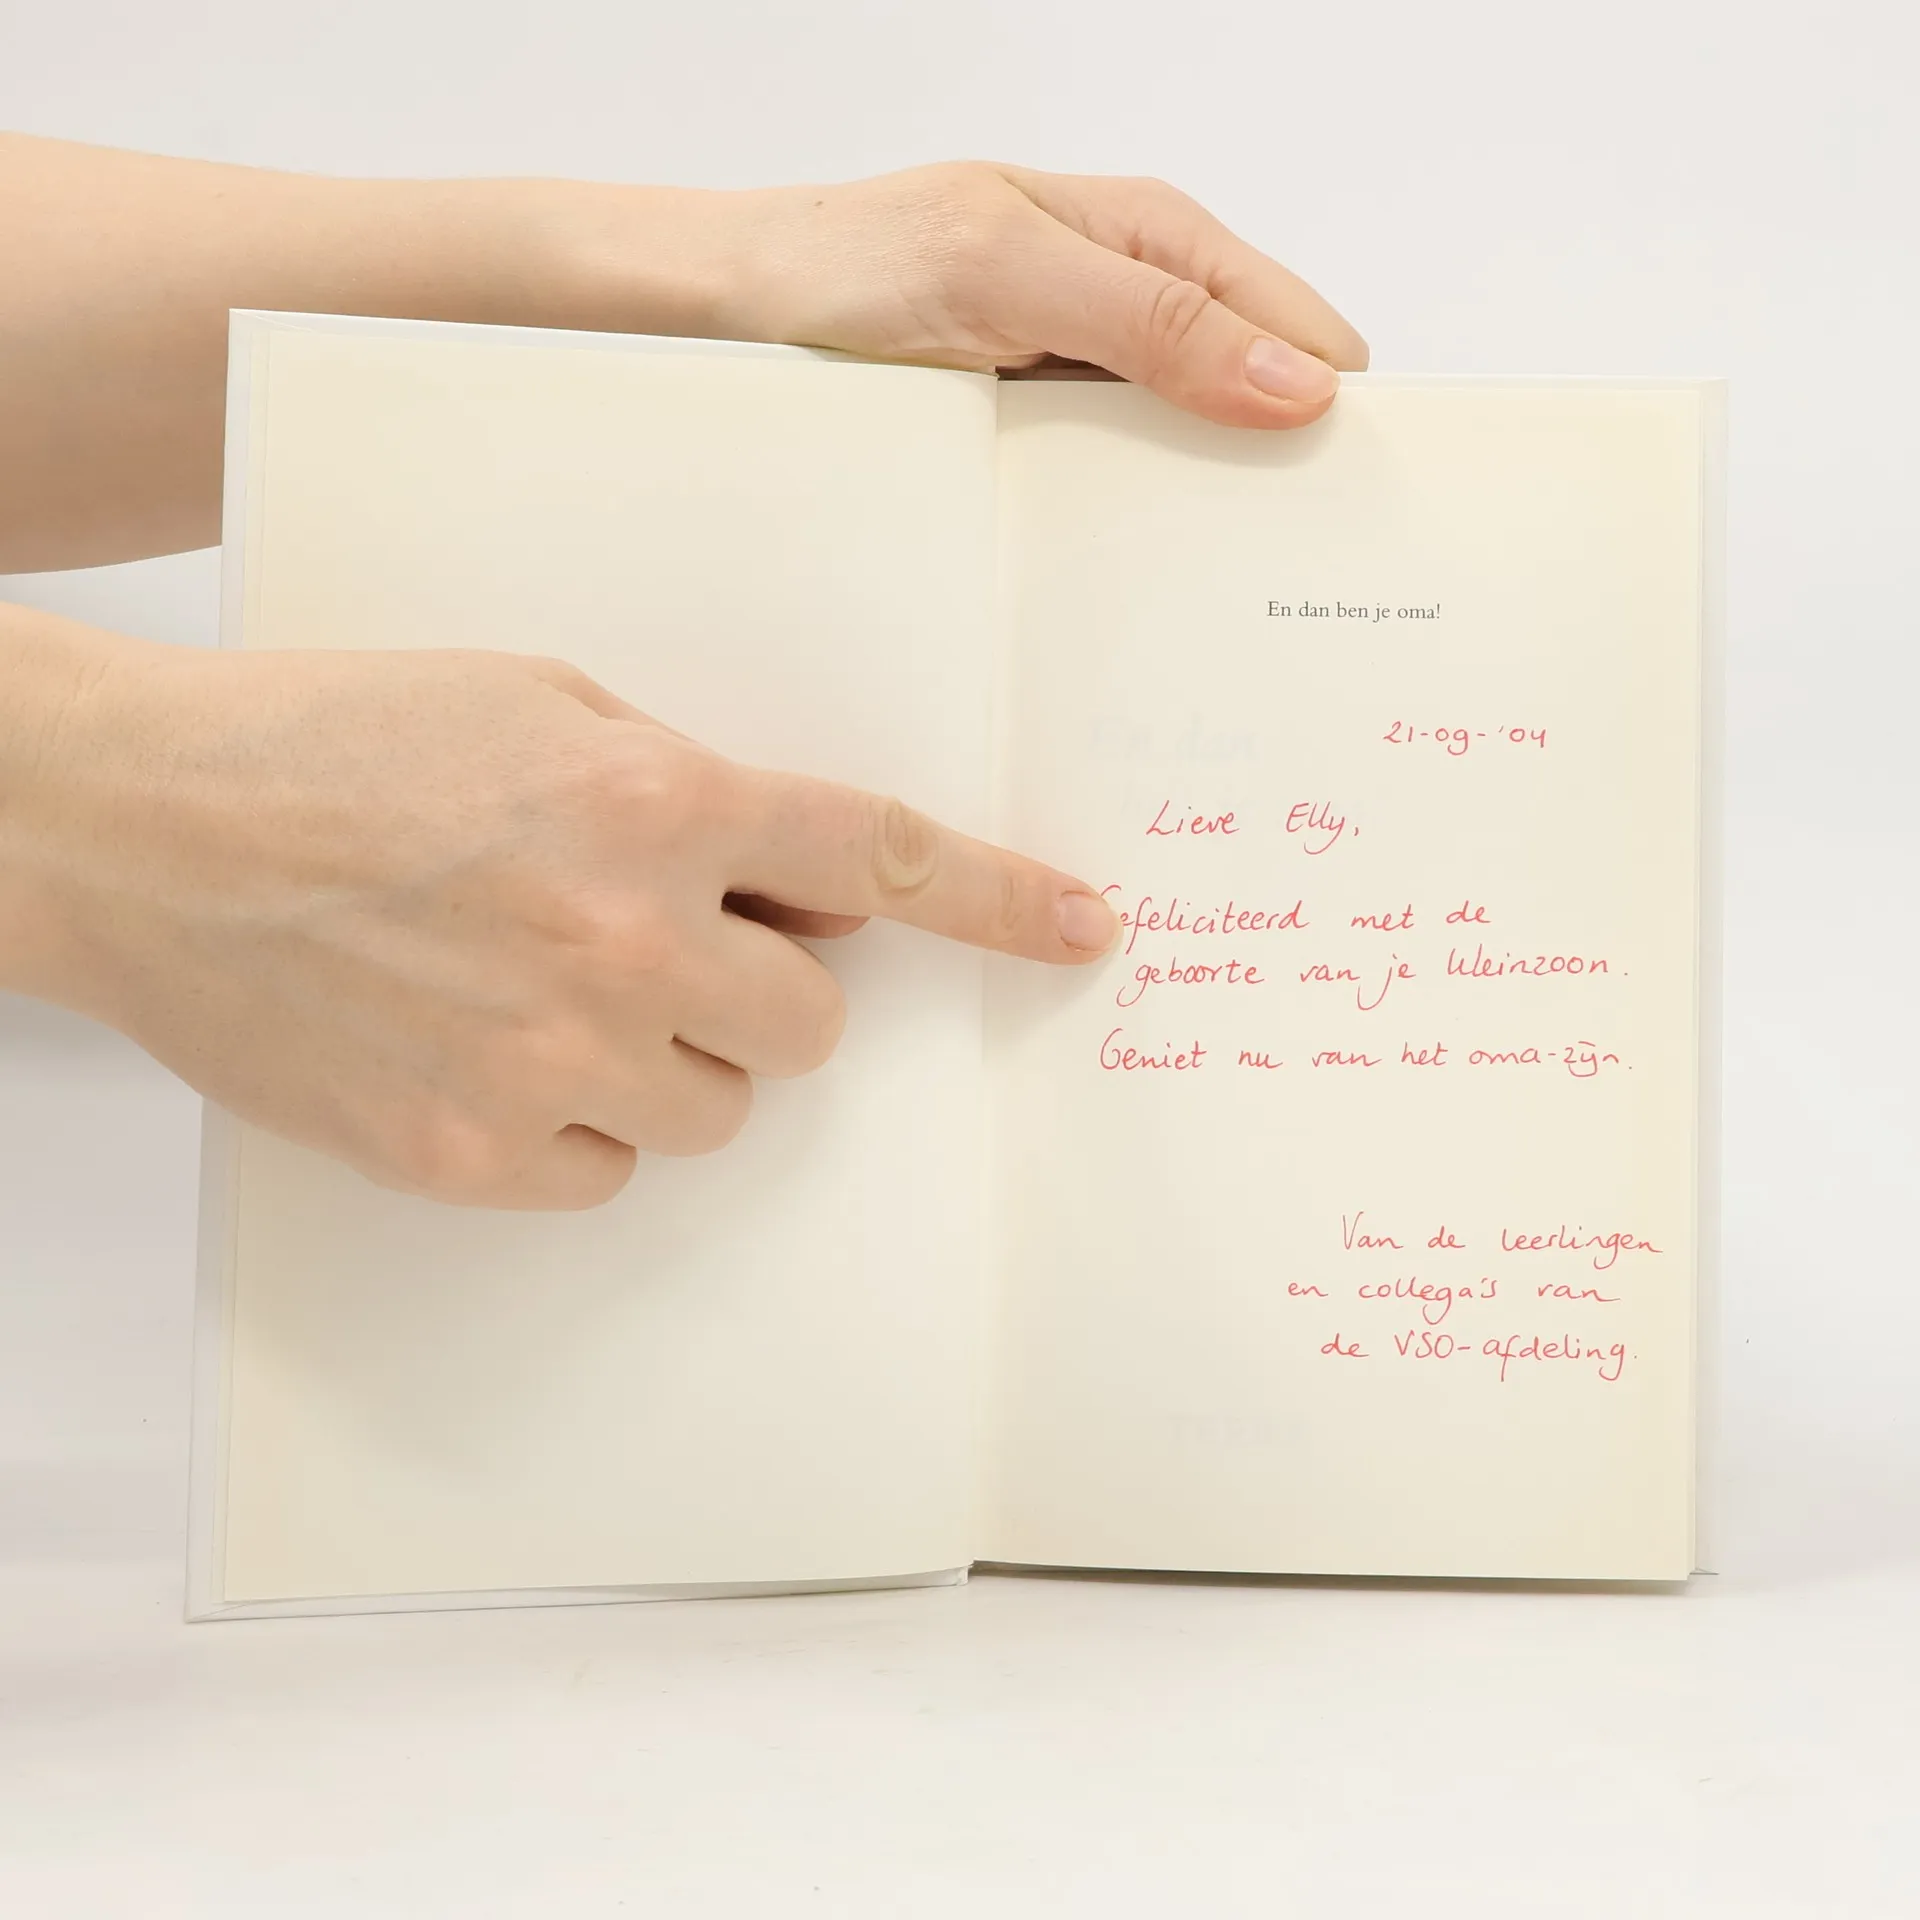 En dan ben je oma!
21-09-'04
Lieve Elly,
Gefeliciteerd met de
geboorte van je kleinzoon.
Geniet nu van het oma-zijn.
Van de leerlingen
en collega's van
de VSO-afdeling.